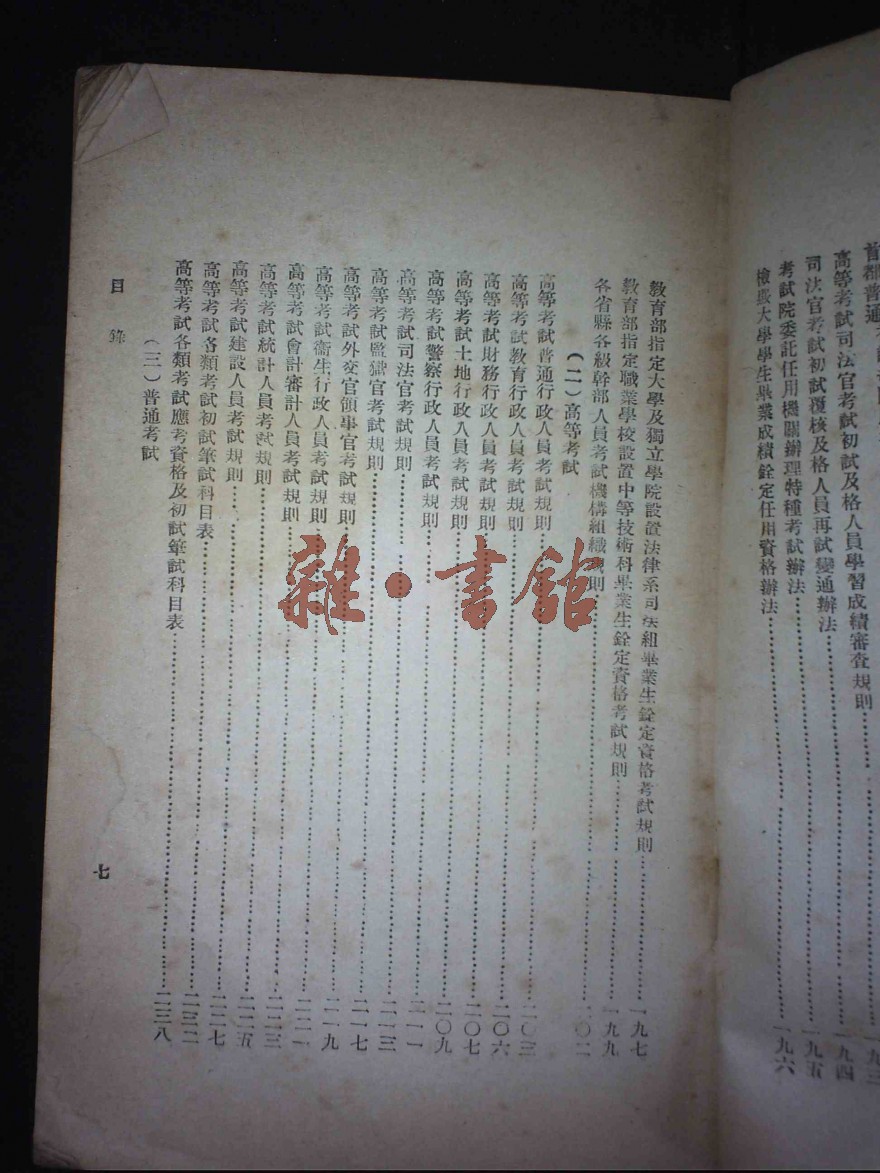 首都普通
高等考試司法官考試初試及格人員學習成績審查規則……九三
司法官考試初試覆核及格人員再試變通辦法……一九四
考試院委託任用機關辦理特種考試辦法……一九五
檢覈大學學生畢業成績銓定任用資格辦法……一九六
教育部指定大學及獨立學院設置法律系司法組畢業生銓定資格考試規則……一九七
教育部指定職業學校設置中等技術科畢業生銓定資格考試規則……一九九
各省縣各級幹部人員考試機構組織規則……二〇二
(二)高等考試
高等考試普通行政人員考試規則……二〇三
高等考試教育行政人員考試規則……二〇六
高等考試財務行政人員考試規則……二〇七
高等考試土地行政人員考試規則……二〇九
高等考試警察行政人員考試規則……二一一
高等考試司法官考試規則……二一三
高等考試監獄官考試規則……二一七
高等考試外交官領事官考試規則……二一九
高等考試衞生行政人員考試規則……二二一
高等考試會計審計人員考試規則……二二三
高等考試統計人員考試規則……二二五
高等考試建設人員考試規則……二二七
高等考試各類考試初試筆試科目表……二三二
高等考試各類考試應考資格及初試筆試科目表……二三八
(三)普通考試
目錄
七
雜·書館